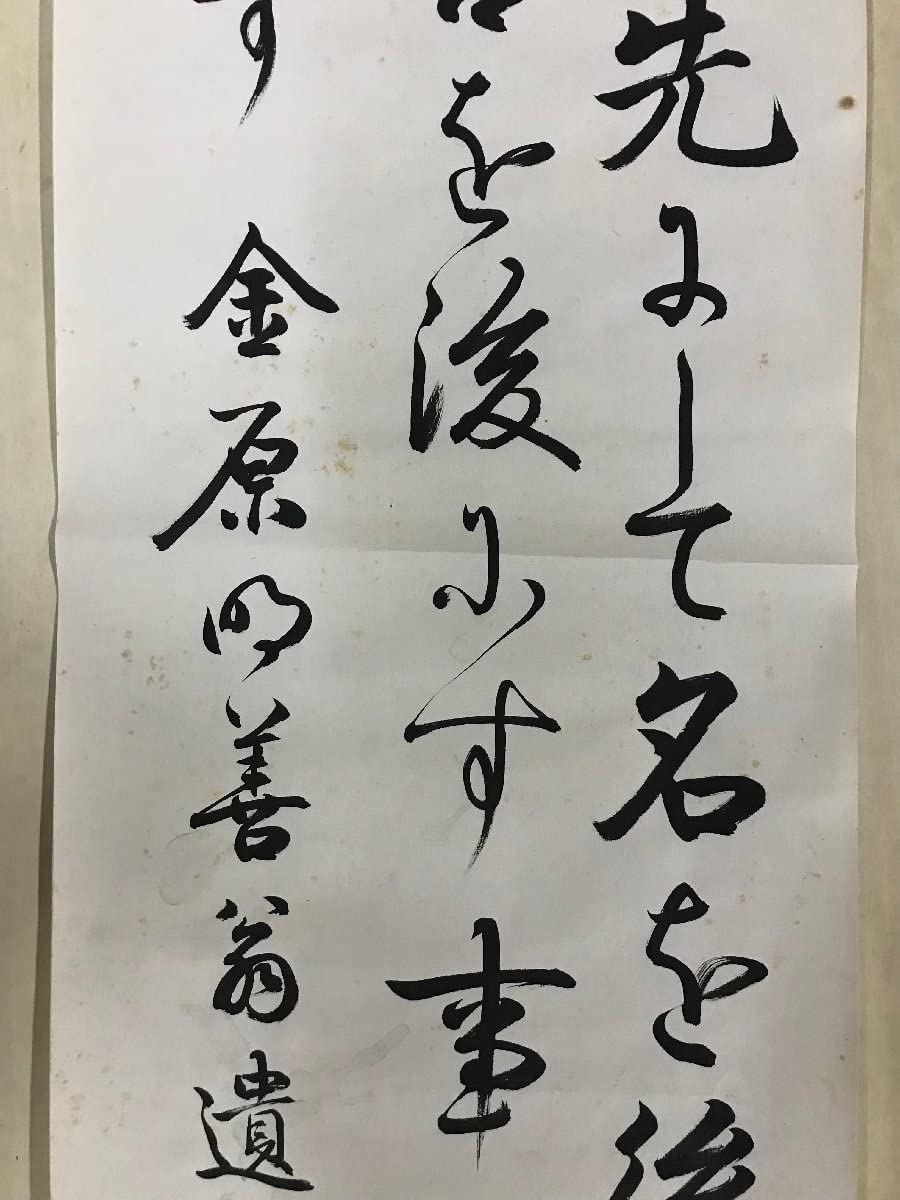 先にして名を後
を後にす事
す 金原明善翁遺